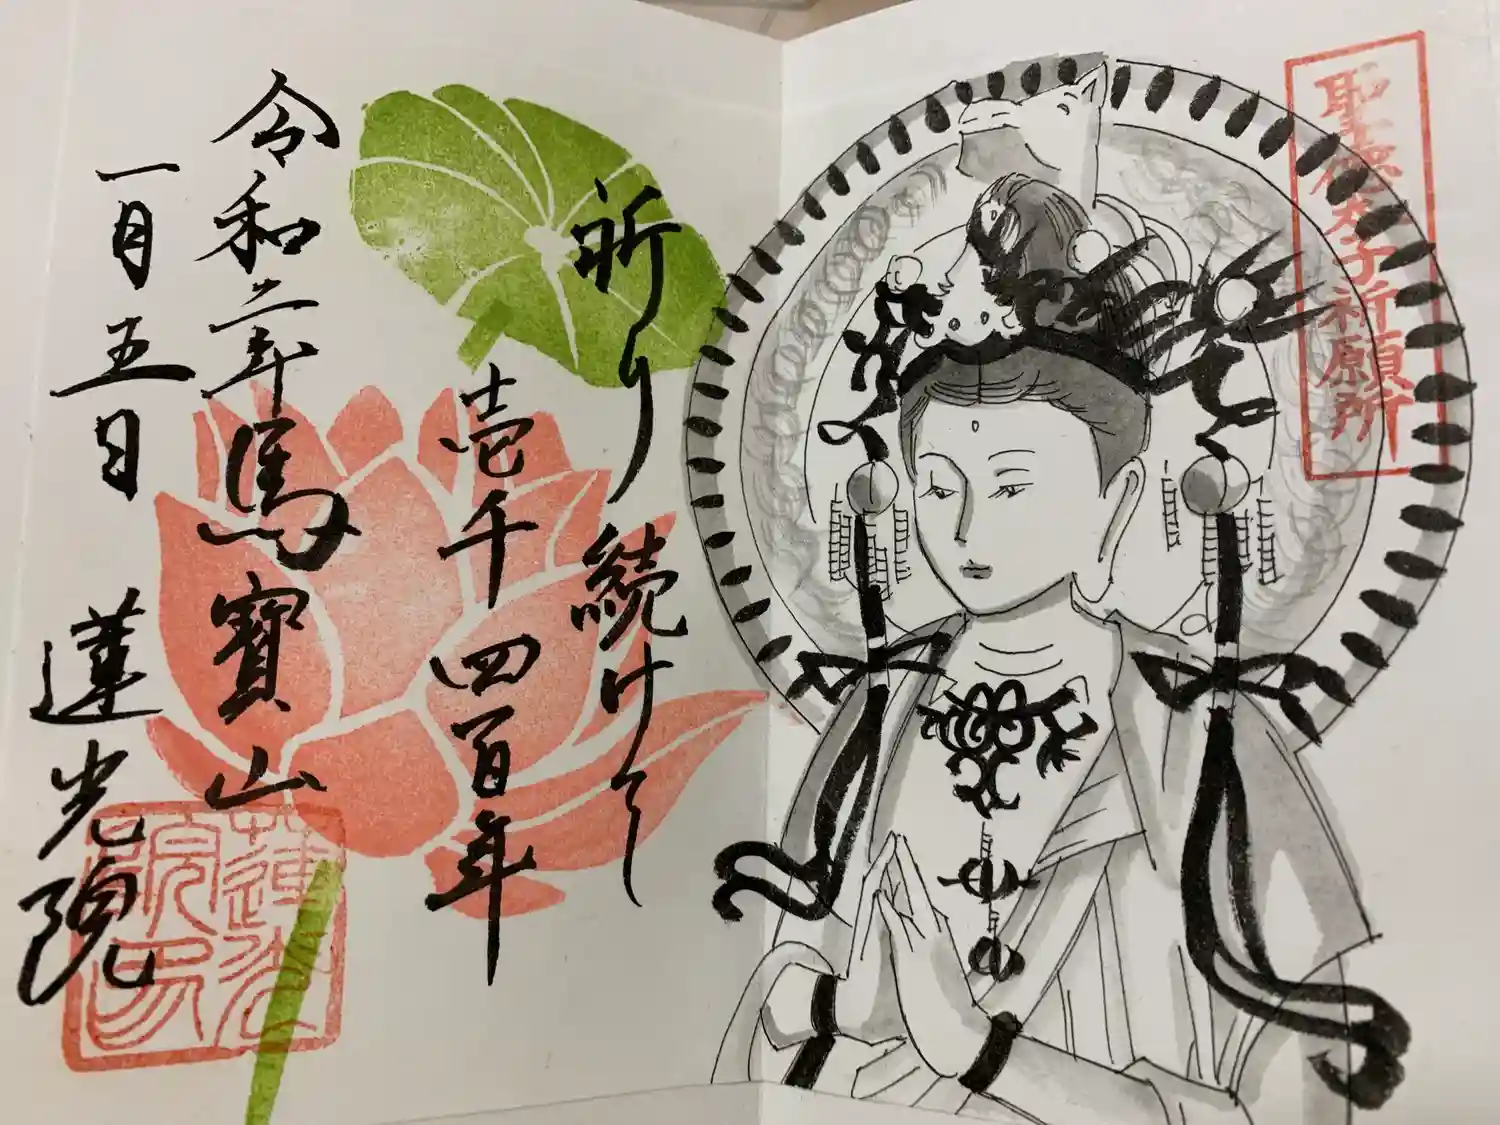 聖徳太子祈願所
祈り続けて
壱千四百年
令和二年馬寳山
一月五日
蓮光院